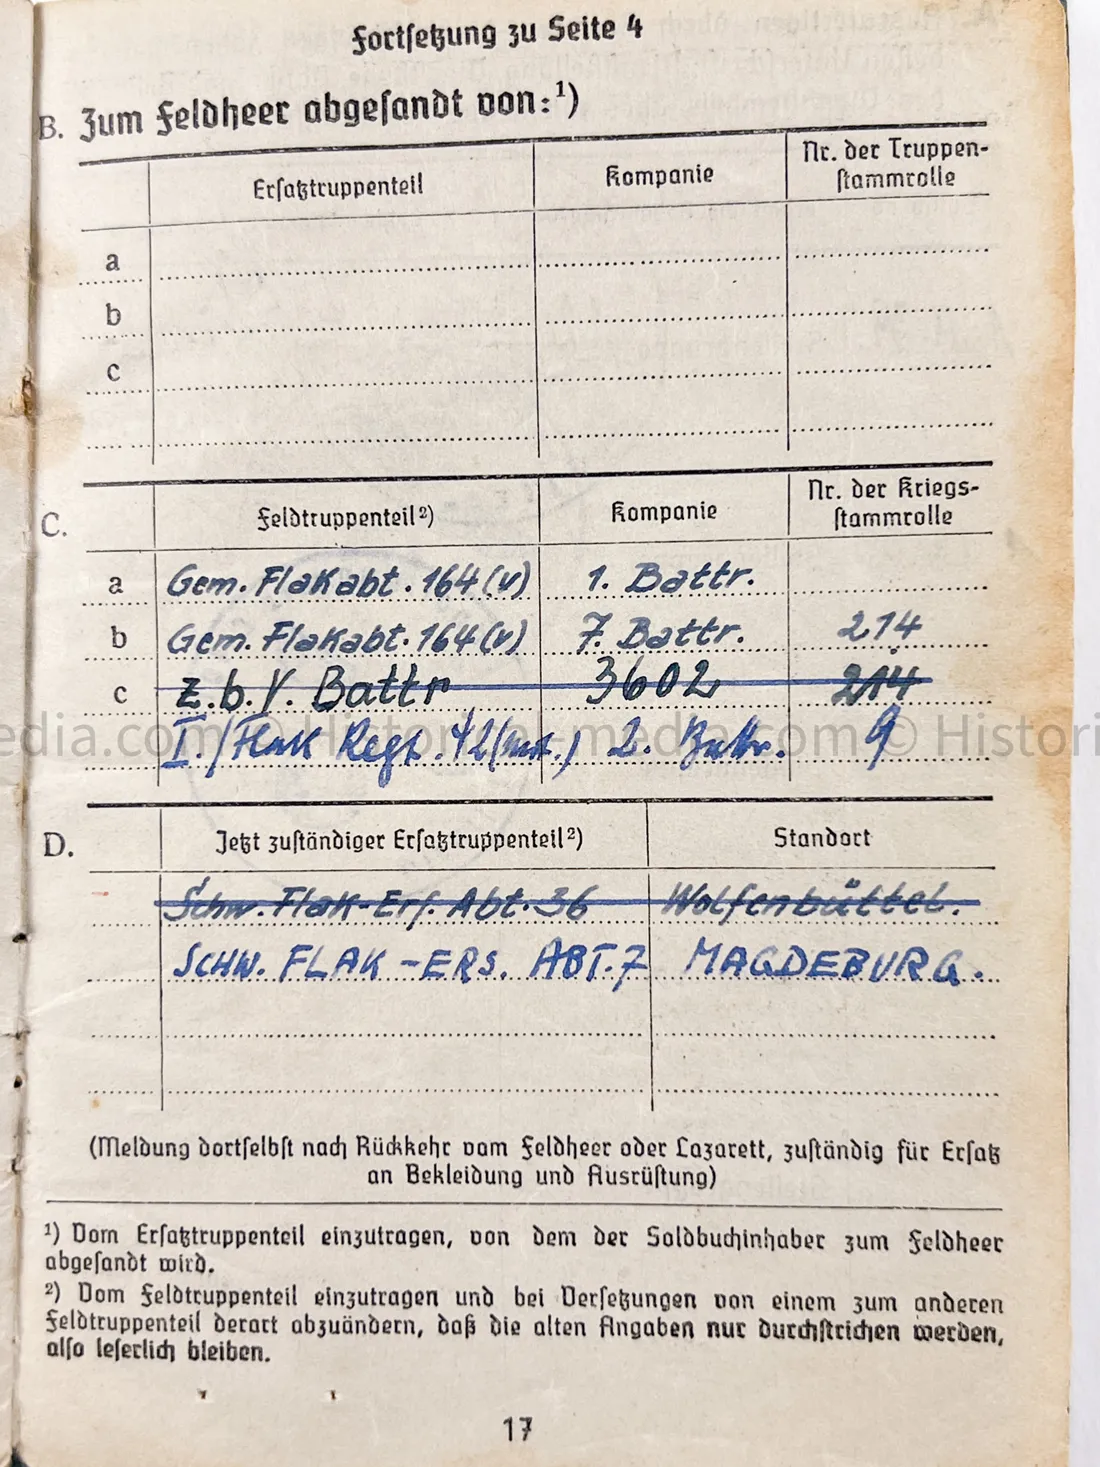 Fortsetzung zu Seite 4
B. Zum Feldheer abgesandt von:¹)
Ersatztruppenteil Kompanie Nr. der Truppen-
stammrolle
a
b
c
C. Feldtruppenteil²) Kompanie Nr. der Kriegs-
stammrolle
a Gem. Flakabt. 164 (v) 1. Battr.
b Gem. Flakabt. 164 (v) 7. Battr. 214
c z. b. V. Battr 3602 214
I./Flak Regt. 42 (mot.) 2. Battr. 9
edia.com © Historical-media.com © Histori
D. Jetzt zuständiger Ersatztruppenteil²) Standort
Schw. Flak-Ers. Abt. 36 Wolfenbüttel.
SCHW. FLAK-ERS. ABT. 7 MAGDEBURG.
(Meldung dortselbst nach Rückkehr vom Feldheer oder Lazarett, zuständig für Ersatz
an Bekleidung und Ausrüstung)
¹) Vom Ersatztruppenteil einzutragen, von dem der Soldbuchinhaber zum Feldheer
abgesandt wird.
²) Vom Feldtruppenteil einzutragen und bei Versetzungen von einem zum anderen
Feldtruppenteil derart abzuändern, daß die alten Angaben nur durchstrichen werden,
also leserlich bleiben.
17